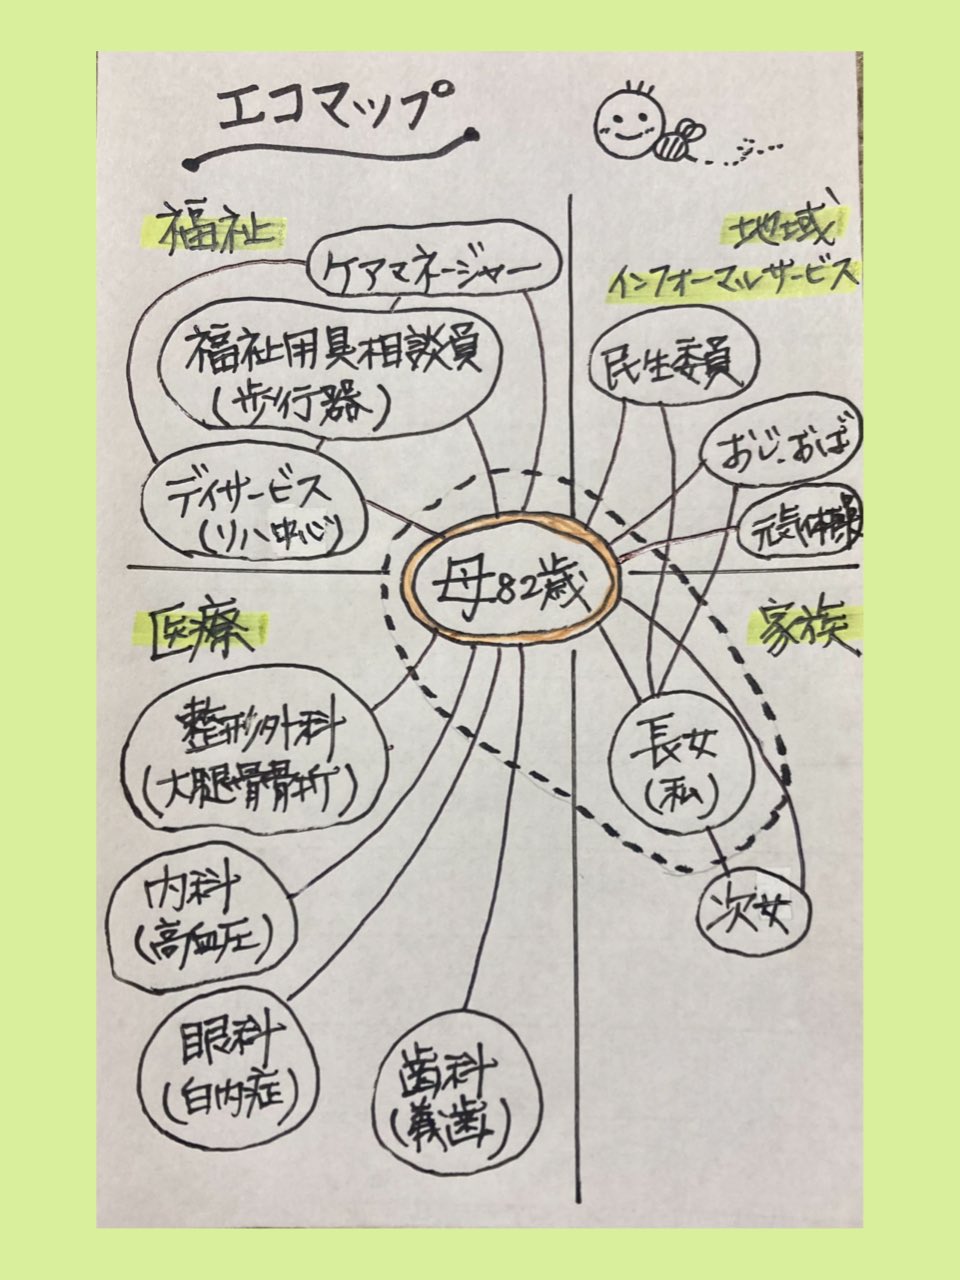 エコマップ
福祉
ケアマネージャー
福祉用具相談員
(歩行器)
デイサービス
(リハ中心)
地域
インフォーマルサービス
民生委員
おじ・おば
母82歳
医療
整形外科
(大腿骨骨折)
内科
(高血圧)
眼科
(白内症)
歯科
(義歯)
家族
長女
(私)
次女